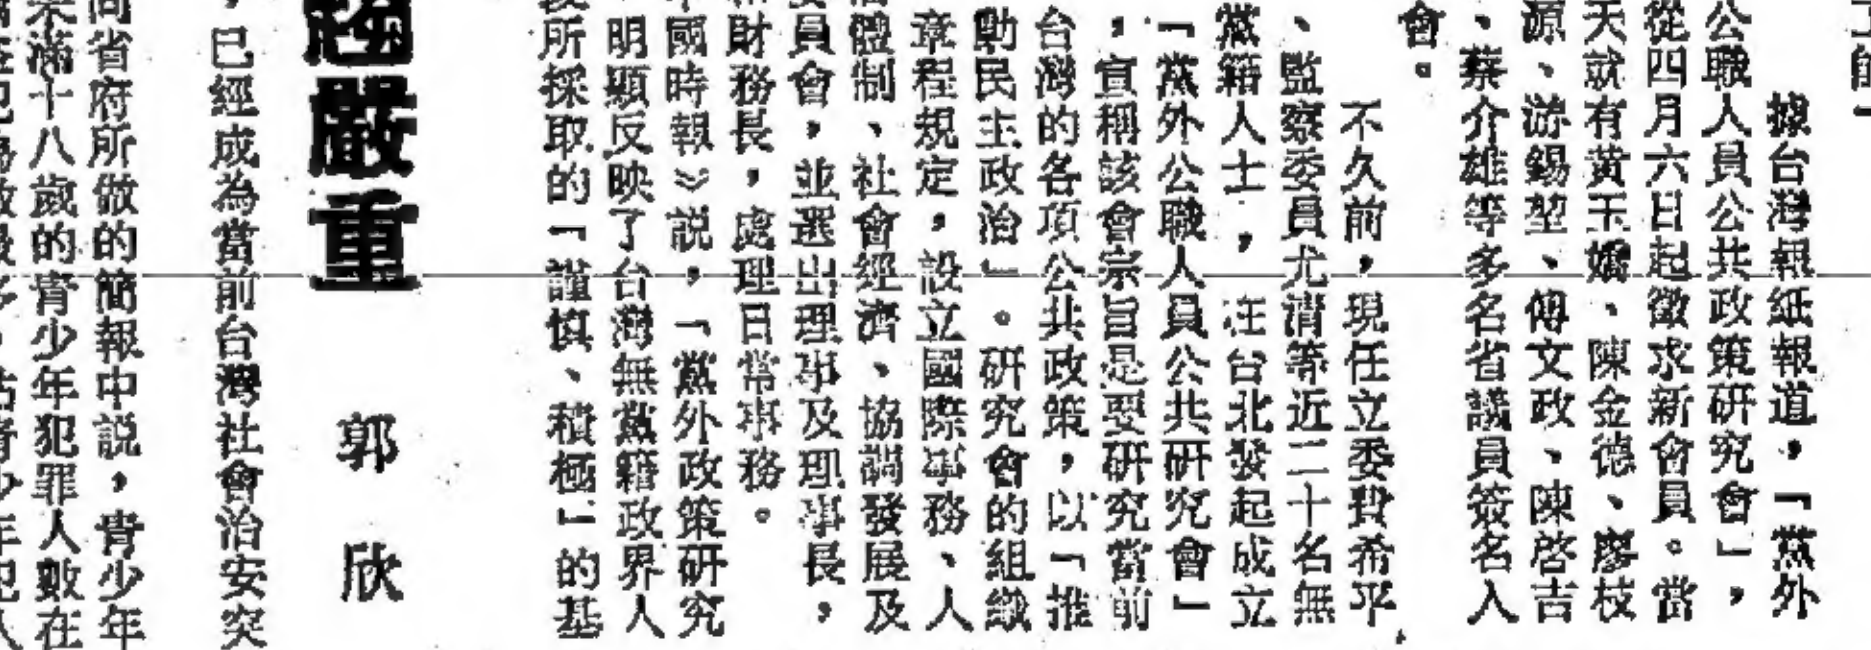 據台灣報紙報道，「黨外
公職人員公共政策研究會」，
從四月六日起徵求新會員。當
天就有黃玉嬌、陳金德、廖枝
源、游錫堃、傅文政、陳啓吉
、蔡介雄等多名省議員簽名入
會。
不久前，現任立委費希平
、監察委員尤清等近二十名無
黨籍人士，在台北發起成立
「黨外公職人員公共研究會」
，宣稱該會宗旨是要研究當前
台灣的各項公共政策，以「推
動民主政治」。研究會的組織
章程規定，設立國際事務、人
體制、社會經濟、協調發展及
員會，並選出理事及理事長，
財務長，處理日常事務。
國時報》説，「黨外政策研究
明顯反映了台灣無黨籍政界人
所採取的「謹慎、積極」的基
嚴重
郭欣
，已經成為當前台灣社會治安突
省府所做的簡報中説，青少年
未滿十八歲的青少年犯罪人數在